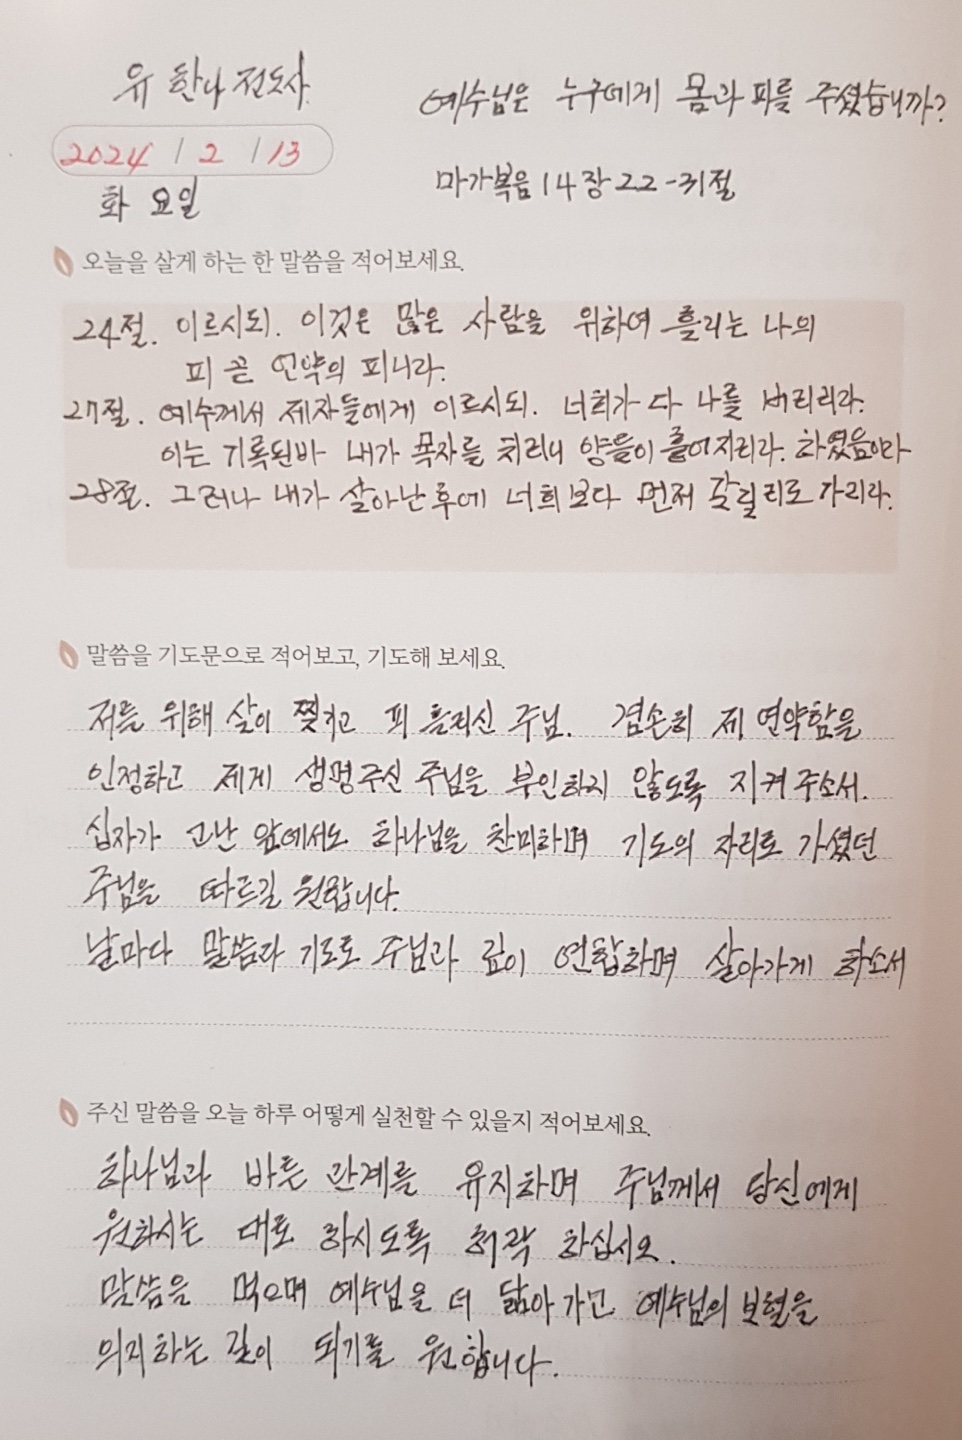 유 한나 전도사
예수님은 누구에게 몸과 피를 주셨습니까?
2024 / 2 / 13
화 요일
마가복음 14장 22-31절
오늘을 살게 하는 한 말씀을 적어보세요.
24절. 이르시되. 이것은 많은 사람을 위하여 흘리는 나의
피 곧 언약의 피니라.
27절. 예수께서 제자들에게 이르시되. 너희가 다 나를 버리리라.
이는 기록된바 내가 목자를 치리니 양들이 흩어지리라. 하였음이라
28절. 그러나 내가 살아난 후에 너희보다 먼저 갈릴리로 가리라.
말씀을 기도문으로 적어보고, 기도해 보세요.
저를 위해 살이 찢기고 피 흘리신 주님. 겸손히 제 연약함을
인정하고 제게 생명주신 주님을 부인하지 않도록 지켜 주소서.
십자가 고난 앞에서도 하나님을 찬미하며 기도의 자리로 가셨던
주님을 따르길 원합니다.
날마다 말씀과 기도로 주님과 깊이 연합하며 살아가게 하소서
주신 말씀을 오늘 하루 어떻게 실천할 수 있을지 적어보세요.
하나님과 바른 관계를 유지하며 주님께서 당신에게
원하시는 대로 하시도록 허락 하십시오.
말씀을 먹으며 예수님을 더 닮아 가고 예수님의 보혈을
의지하는 길이 되기를 원합니다.